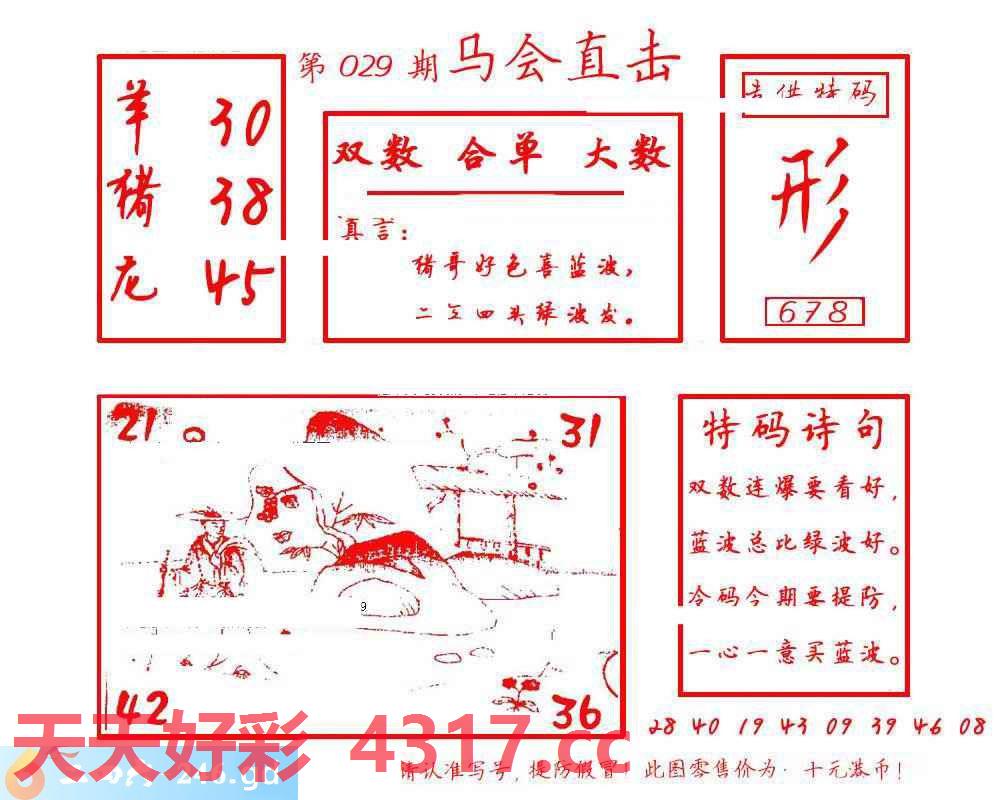 第 029 期 马会直击
羊 30
猪 38
龙 45
双数 合单 大数
真言:
猪哥好色喜蓝波,
二至四头绿波发。
特码
形
678
21
31
9
42
36
特码诗句
双数连爆要看好,
蓝波总比绿波好。
冷码今期要提防,
一心一意买蓝波。
28 40 19 43 09 39 46 08
天天好彩 4317.cc
246.gd
请认准写号,提防假冒! 此图零售价为·十元港币!